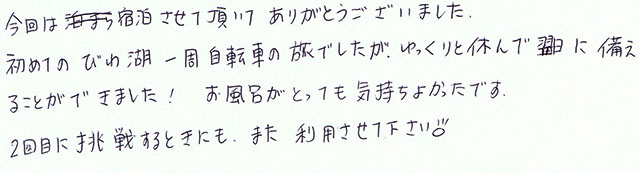 今回は宿泊させて頂いて ありがとうございました.
初めての びわ湖 一周 自転車の 旅でしたが、ゆっくりと休んで翌日に 備え
ることができました！ お風呂が とっても 気持ちよかったです.
2回目に 挑戦するときにも. また 利用させて下さい